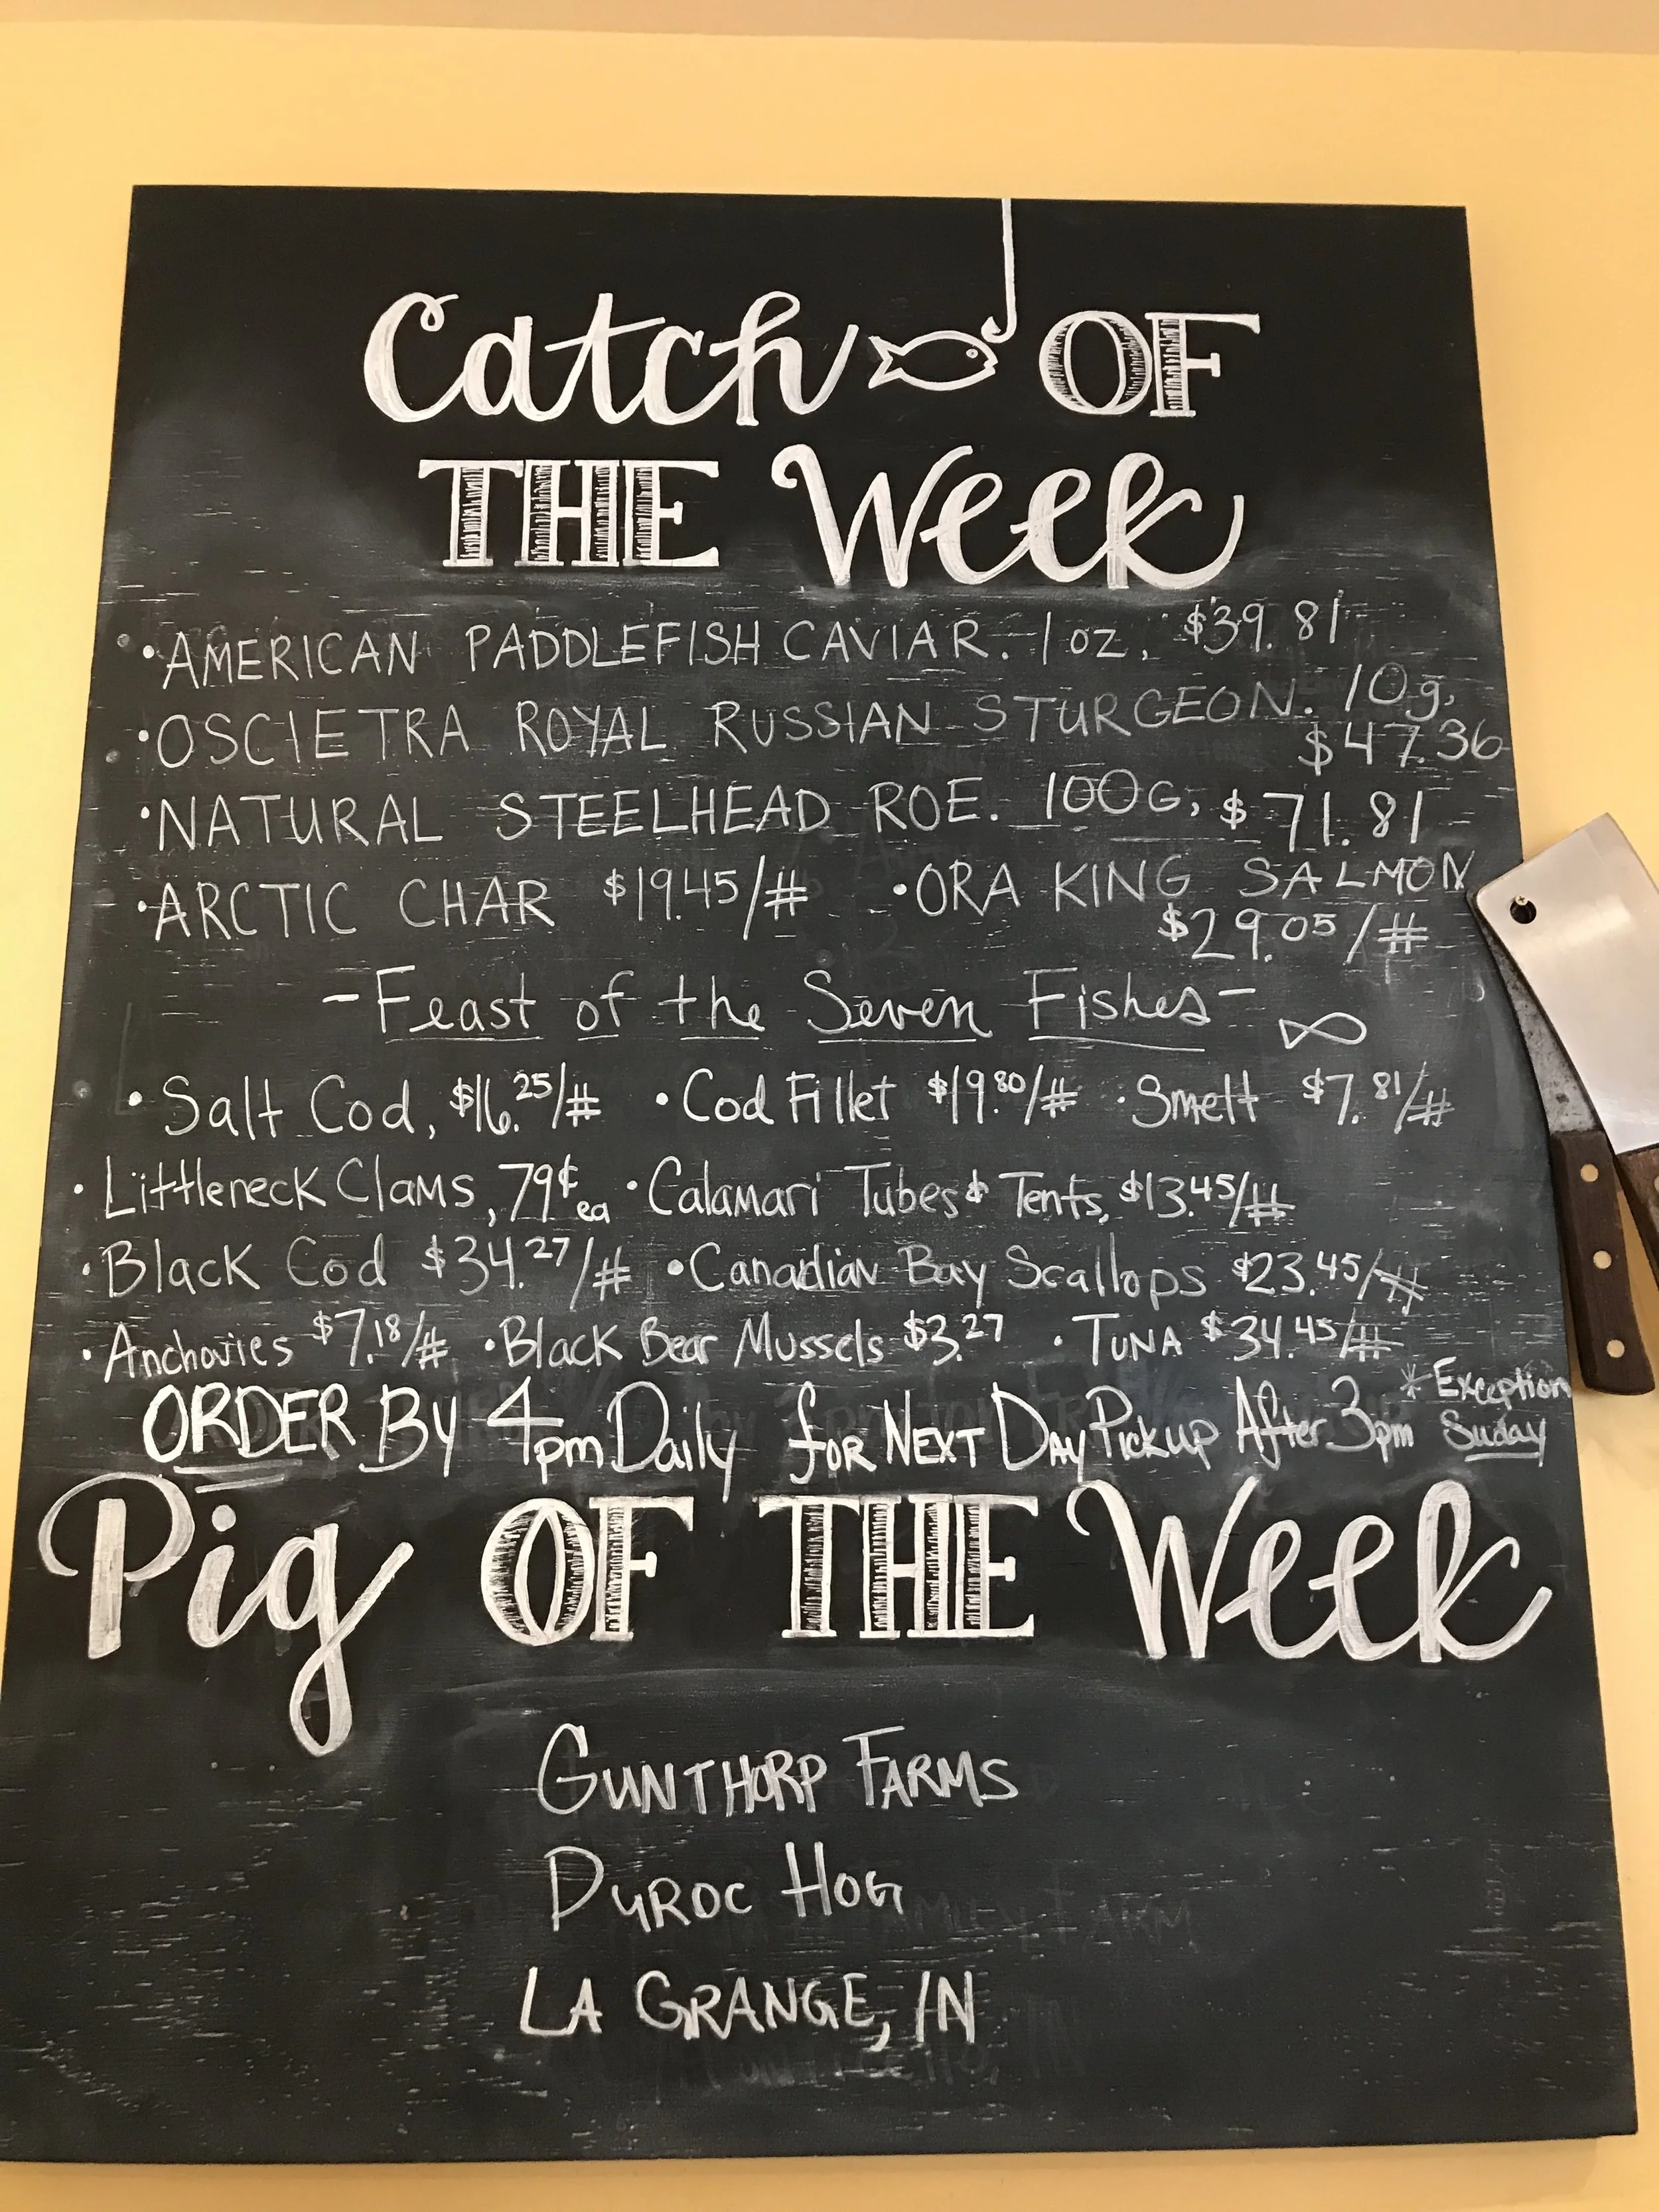 Catch OF
THE Week
• AMERICAN PADDLEFISH CAVIAR. 1 oz, $39.81
• OSCIETRA ROYAL RUSSIAN STURGEON. 10g,
$47.36
• NATURAL STEELHEAD ROE. 100G, $71.81
• ARCTIC CHAR $19.45/# • ORA KING SALMON
$29.05/#
- Feast of the Seven Fishes -
• Salt Cod, $16.25/# • Cod Fillet $19.80/# • Smelt $7.81/#
• Littleneck Clams, 79¢ ea • Calamari Tubes & Tents, $13.45/#
• Black Cod $34.27/# • Canadian Bay Scallops $23.45/#
• Anchovies $7.18/# • Black Bear Mussels $3.27 • TUNA $34.45/#
ORDER By 4pm Daily for NEXT DAY Pickup After 3pm * Exception
Suday
Pig OF THE Week
GUNTHORP FARMS
DUROC HOG
LA GRANGE, IN